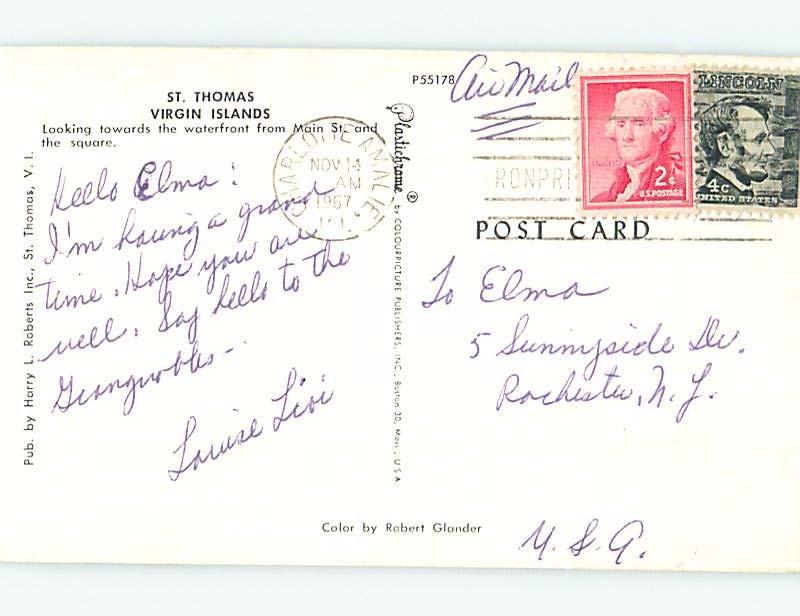 ST. THOMAS
VIRGIN ISLANDS
Looking towards the waterfront from Main St. and
the square.
Hello Elma:
I'm having a grand
time. Hope you are
well. Say hello to the
Louise Livi
Pub. by Harry L. Roberts Inc., St. Thomas, V. I.
CHARLOTTE AMALIE
NOV 14
AM
1967
V.I.
Plastichrome ® by COLOURPICTURE PUBLISHERS, INC., Boston 30, Mass., U S A
P55178
Air Mail
RONPRI
2¢
U.S. POSTAGE
LINCOLN
4c
UNITED STATES
POST CARD
To Elma
5 Sunnyside Dr.
Rochester, N.Y.
U.S.A.
Color by Robert Glander